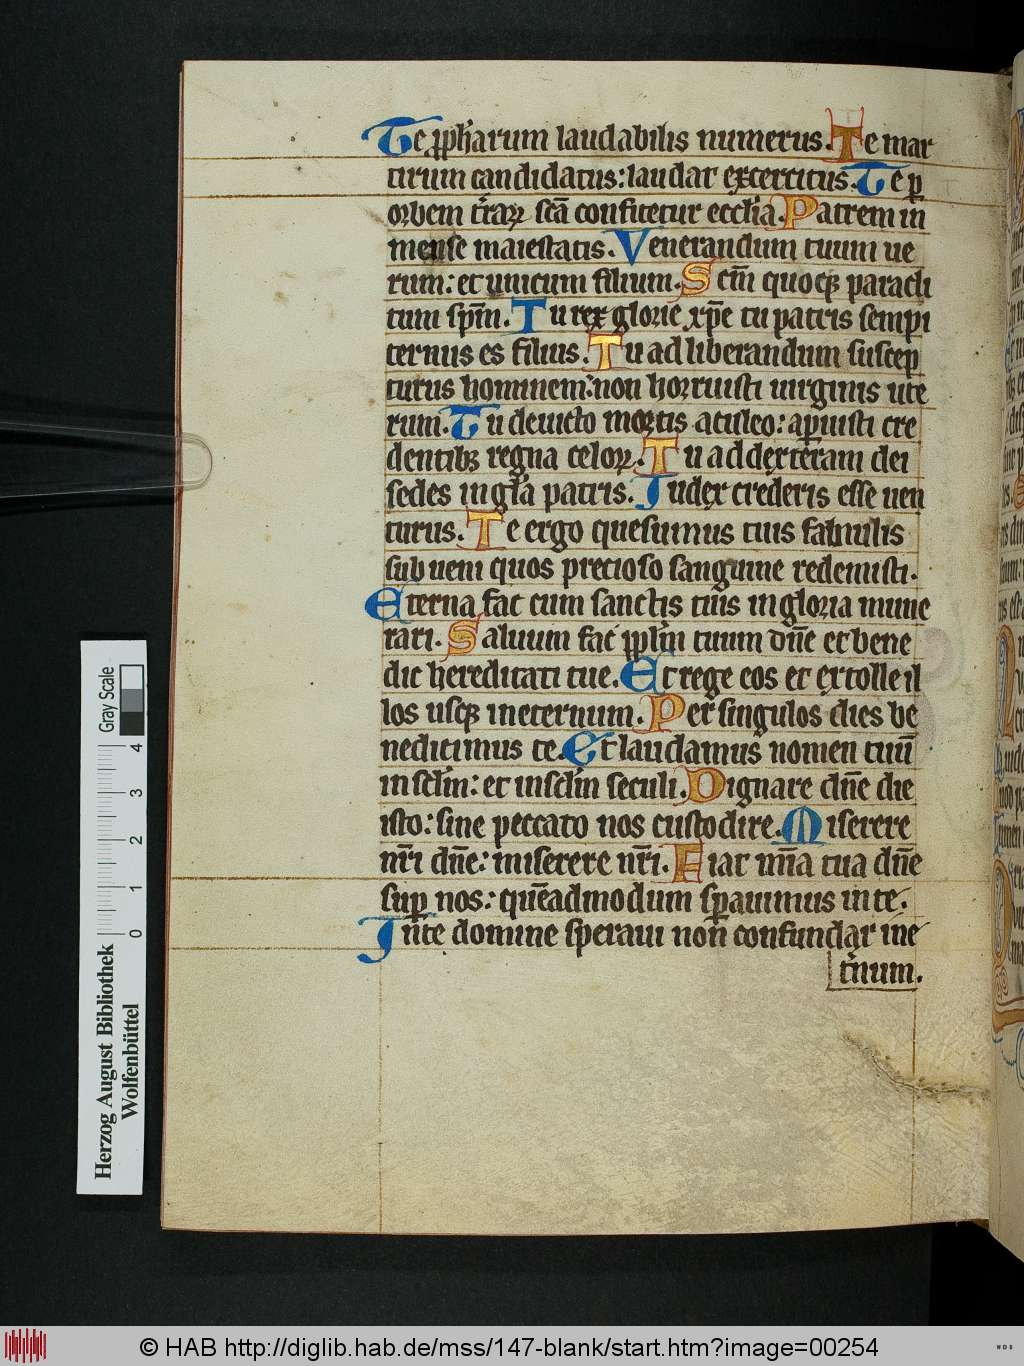 Te ꝓph̄arum laudabilis numerus. Te mar
tirum candidatus: laudat excercitus. Te ꝑ
orbem t̄raꝝ scā confitetur eccl̄ia. Patrem in
mense maiestatis. Venerandum tuum ue
rum: et unicum filium. Scm̄ quoqꝫ paracli
tum spm̄. Tu rex glorie xp̄e tu patris sempi
ternus es filius. Tu ad liberandum suscep
turus hominem: non horruisti uirginis ute
rum. Tu deuicto mortis aculeo: aꝑuisti cre
dentibꝫ regna celoꝝ. Tu ad dexteram dei
sedes in gl̄a patris. Iudex crederis esse uen
turus. Te ergo quesumus tuis famulis
sub ueni quos precioso sanguine redemisti.
Eterna fac cum sanctis tuis in gloria mune
rari. Saluum fac pplm̄ tuum dn̄e et bene
dic hereditati tue. Et rege eos et extolle il
los usqꝫ in eternum. Per singulos dies be
nedicimus te. Et laudamus nomen tuū
in scl̄m: et in scl̄m seculi. Dignare dn̄e die
isto: sine peccato nos custodire. Miserere
nr̄i dn̄e: miserere nr̄i. Fiat mīa tua dn̄e
suꝑ nos: quēadmodum sꝑauimus in te.
In te domine speraui non confundar in e
t̄num.
Gray Scale
4
3
2
1
0
Herzog August Bibliothek
Wolfenbüttel
© HAB http://diglib.hab.de/mss/147-blank/start.htm?image=00254